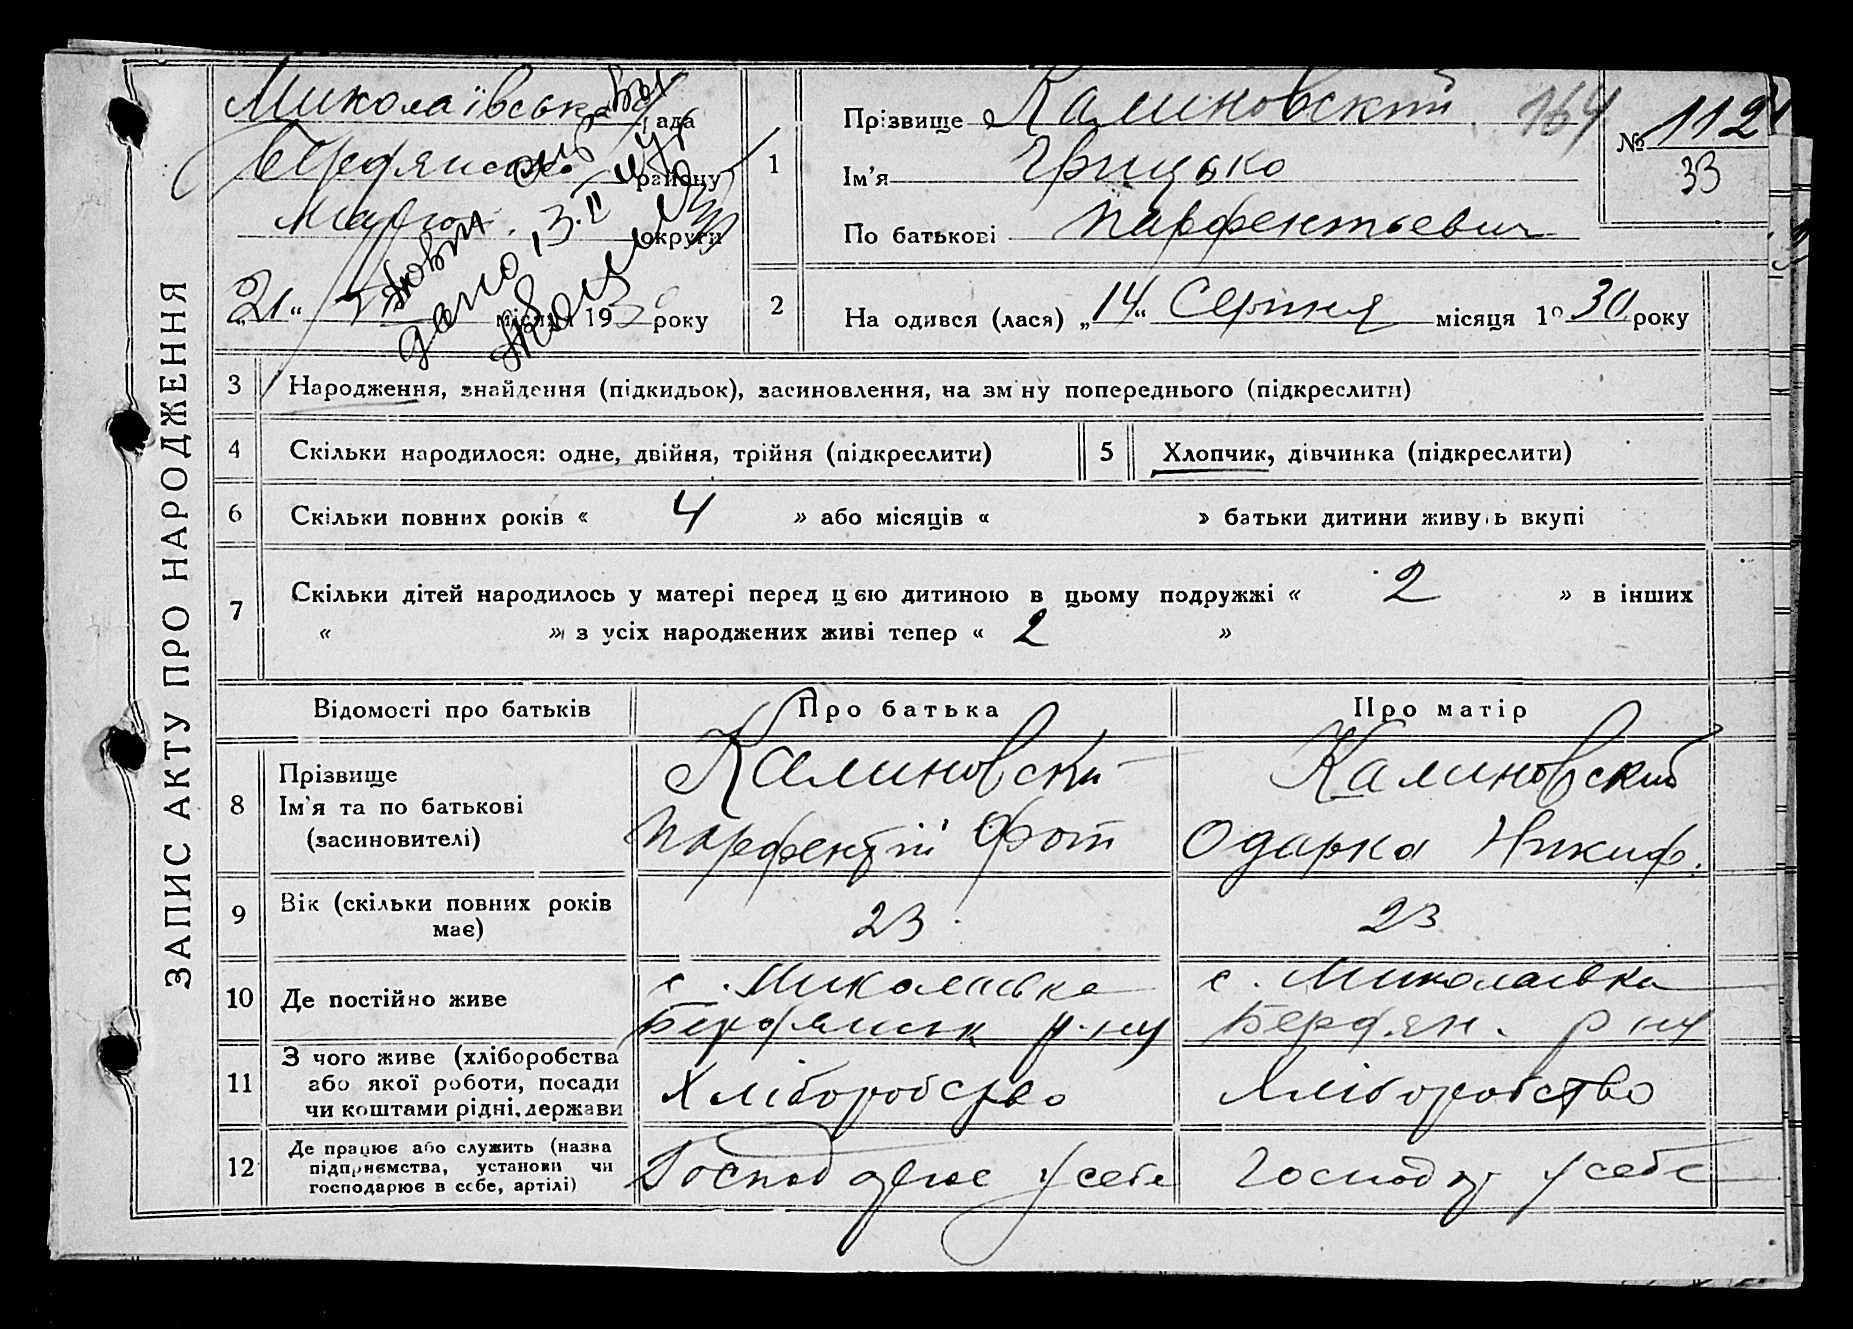 ЗАПИС АКТУ ПРО НАРОДЖЕННЯ
Миколаївська рада
Бердянськ району
Маріюп. округи
„21“ місяця 193 року
1
Прізвище Калиновский
164
№ 112
33
Ім'я Грицько
По батькові Парфентьевич
2
На одився (лася) „14“ Серпня місяця 1930 року
3 Народження, знайдення (підкидьок), засиновлення, на зміну попереднього (підкреслити)
4 Скільки народилося: одне, двійня, трійня (підкреслити)
5 Хлопчик, дівчинка (підкреслити)
6 Скільки повних років « 4 » або місяців « » батьки дитини живуть вкупі
7 Скільки дітей народилось у матері перед цією дитиною в цьому подружжі « 2 » в інших
« » з усіх народжених живі тепер « 2 »
Відомості про батьків Про батька Про матір
8 Прізвище
Ім'я та по батькові
(засиновителі)
Калиновски
Парфентій Фот
Калиновский
Одарка Никиф.
9 Вік (скільки повних років має)
23
23
10 Де постійно живе
с. Миколаівка
Бердянськ р-ну
с. Миколаівка
Бердян. р ну
11 З чого живе (хліборобства
або якої роботи, посади
чи коштами рідні, держави
Хліборобство
Хліборобство
12 Де працює або служить (назва
підприємства, установи чи
господарює в себе, артілі)
Господарює у себе
Господар у себе